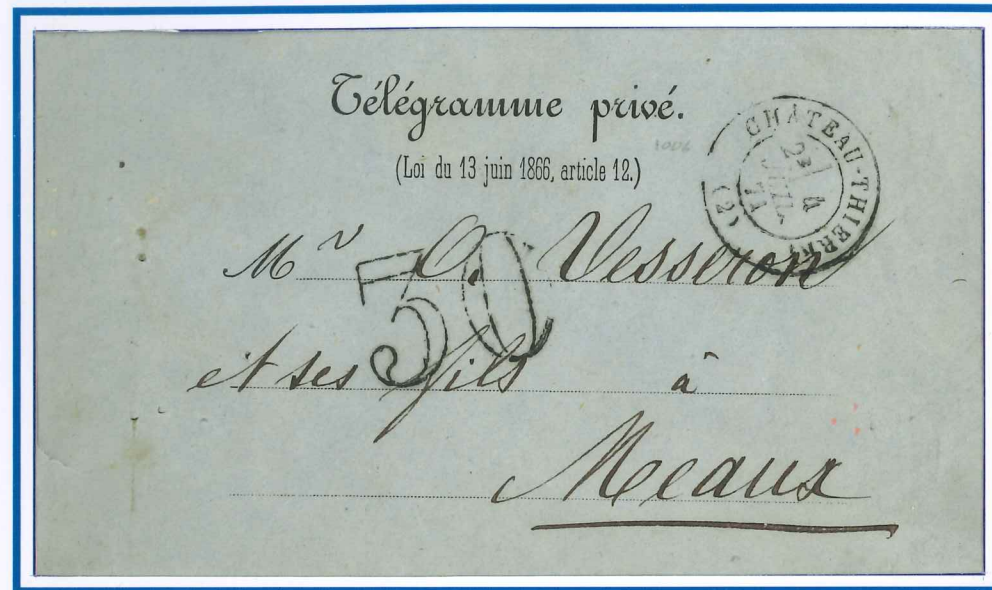 Télégramme privé.
(Loi du 13 juin 1866, article 12.)
1006
CHATEAU-THIERRY
2e
4
JUIL.
71
(2)
30
Mr O. Vesseron
et ses fils à
Meaux